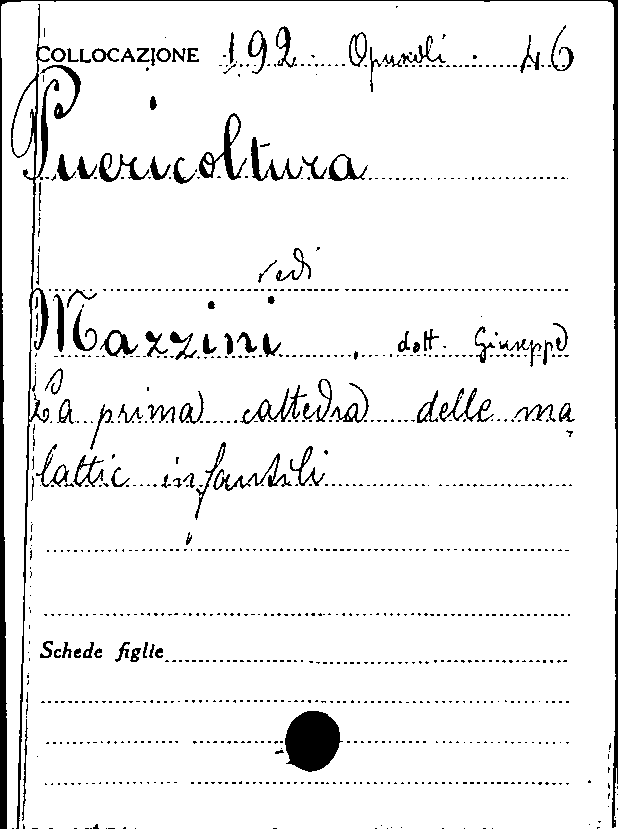 COLLOCAZIONE 192. Opuscoli. 46
Puericoltura
vedi
Mazzini, dott. Giuseppe
La prima cattedra delle ma-
lattie infantili
Schede figlie